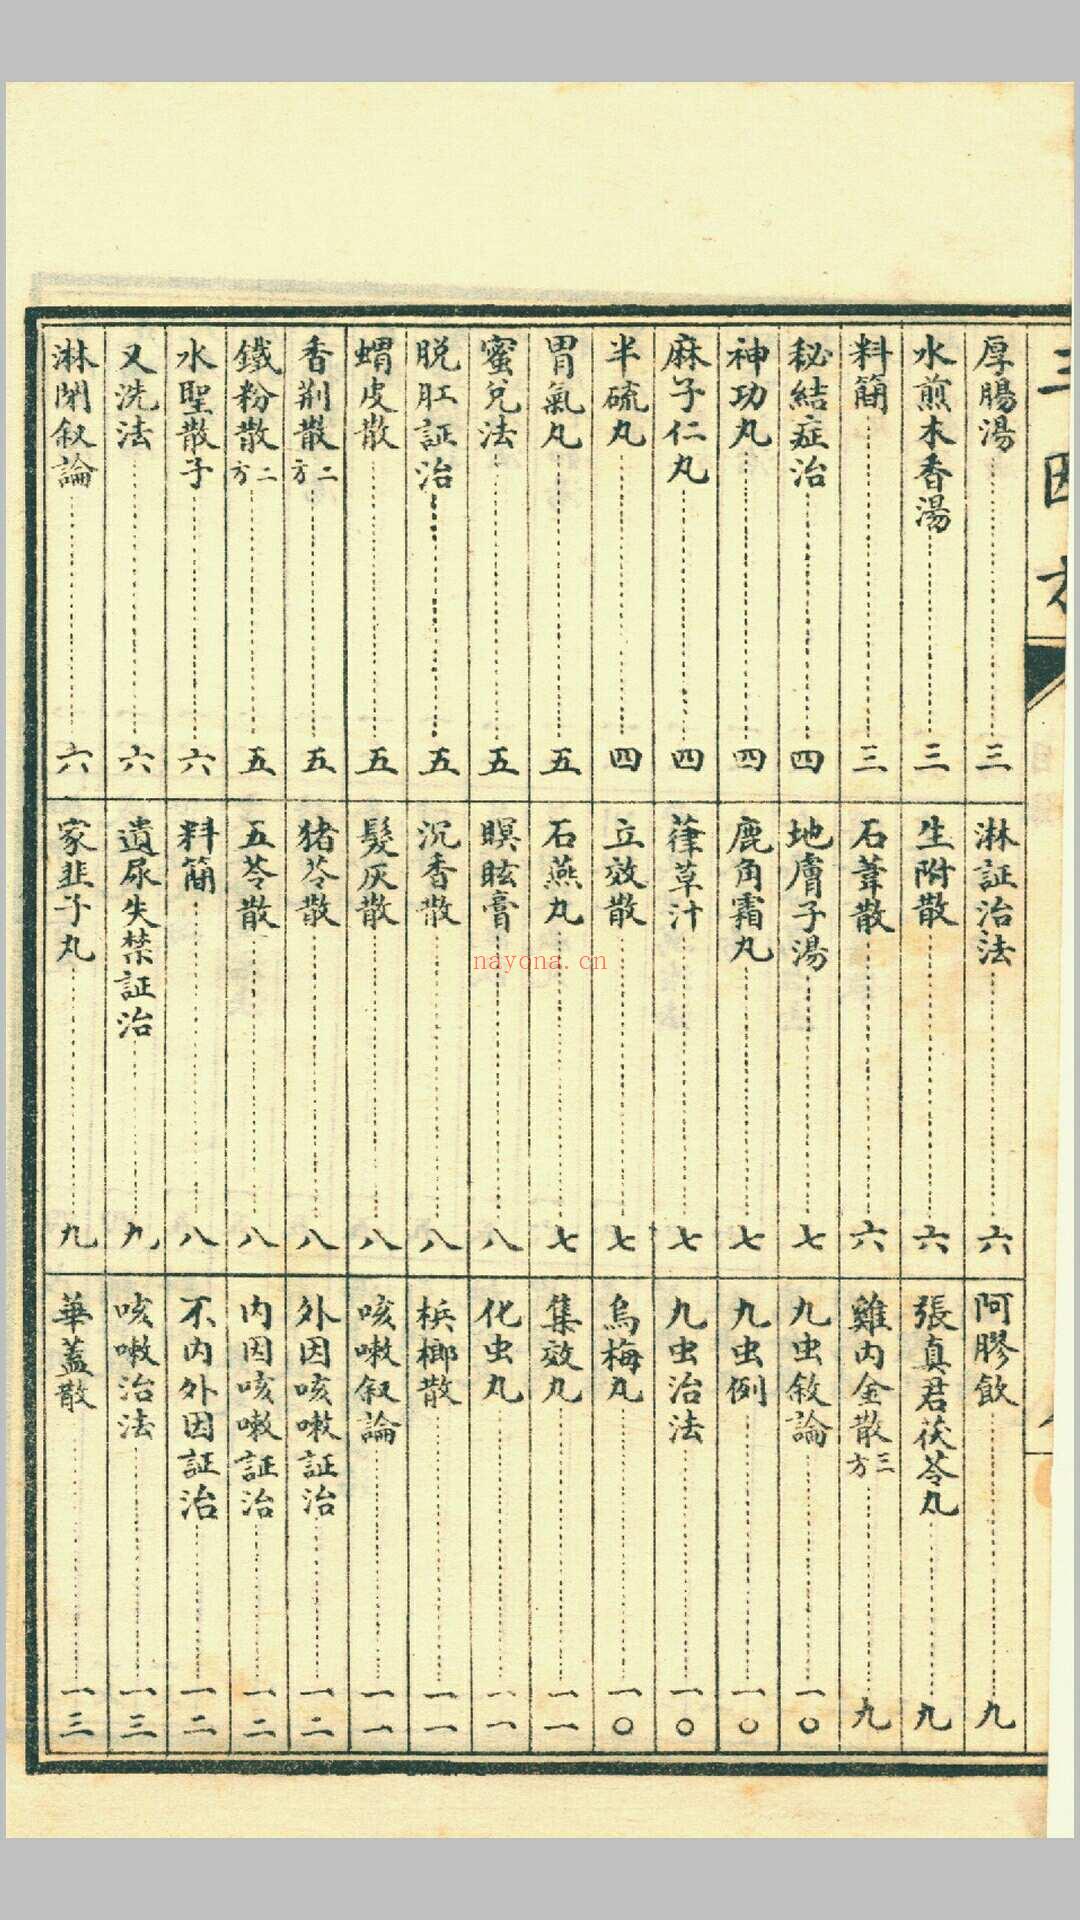 三因方
厚腸湯 三
水煎木香湯 三
料簡 三
秘結症治 四
神功丸 四
麻子仁丸 四
半硫丸 四
胃氣丸 五
蜜兌法 五
脫肛証治 五
蝟皮散 五
香荆散二方 五
鐵粉散二方 五
水聖散子 六
又洗法 六
淋閉叙論 六
淋証治法 六
生附散 六
石葦散 六
地膚子湯 七
鹿角霜丸 七
葎草汁 七
立效散 七
石燕丸 七
瞑眩膏 八
沉香散 八
髮灰散 八
猪苓散 八
五苓散 八
料簡 八
遺尿失禁証治 九
家韭子丸 九
阿膠飲 九
張真君茯苓丸 九
雞內金散三方 九
九虫敘論 一〇
九虫例 一〇
九虫治法 一〇
烏梅丸 一〇
集效丸 一一
化虫丸 一一
梹榔散 一一
咳嗽叙論 一一
外因咳嗽証治 一二
內因咳嗽証治 一二
不內外因証治 一二
咳嗽治法 一三
華蓋散 一三
nayona.cn